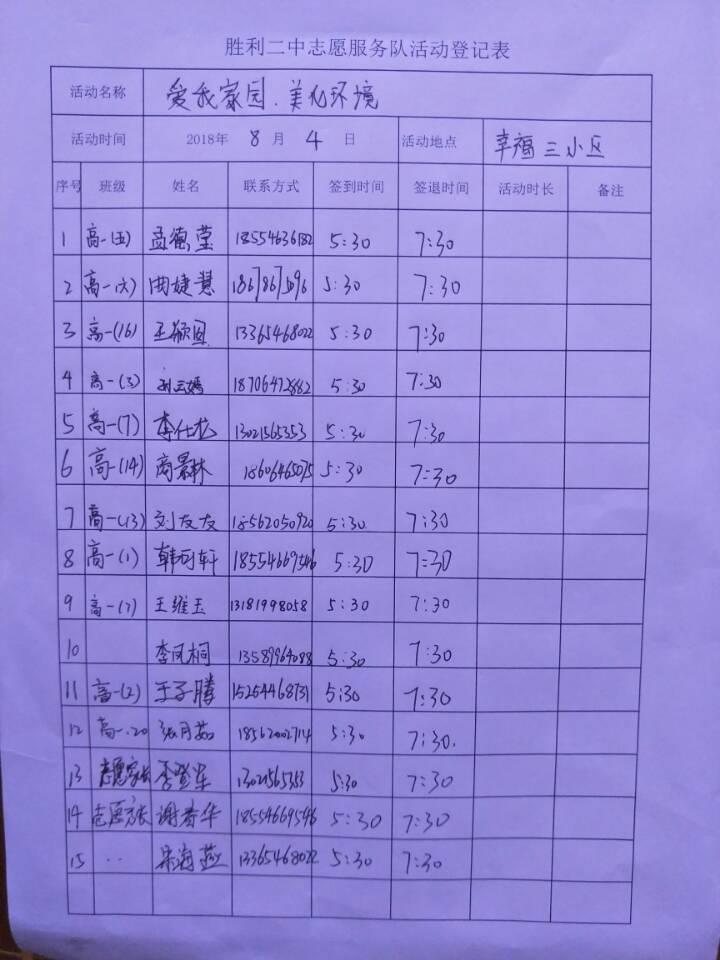 胜利二中志愿服务队活动登记表
活动名称 爱我家园.美化环境
活动时间 2018年 8 月 4 日 活动地点 幸福三小区
序号 班级 姓名 联系方式 签到时间 签退时间 活动时长 备注
1 高一(五) 孟德莹 18554636182 5:30 7:30
2 高一(六) 田婕慧 18678675096 5:30 7:30
3 高一(16) 王颖 13365468022 5:30 7:30
4 高一(3) 刘云嫣 18706472882 5:30 7:30
5 高一(7) 李仕龙 13021565353 5:30 7:30
6 高一(14) 商景林 18606465075 5:30 7:30
7 高一(13) 刘友友 18562050920 5:30 7:30
8 高一(1) 韩可轩 18554669546 5:30 7:30
9 高一(7) 王维玉 13181998058 5:30 7:30
10 李凤桐 13589964088 5:30 7:30
11 高一(2) 王子腾 15254468731 5:30 7:30
12 高一.20 张月茹 18562002714 5:30 7:30.
13 志愿家长 李登军 13021565353 5:30 7:30
14 志愿家长 谢春华 18554669546 5:30 7:30
15 .. 宋海燕 13365468022 5:30 7:30